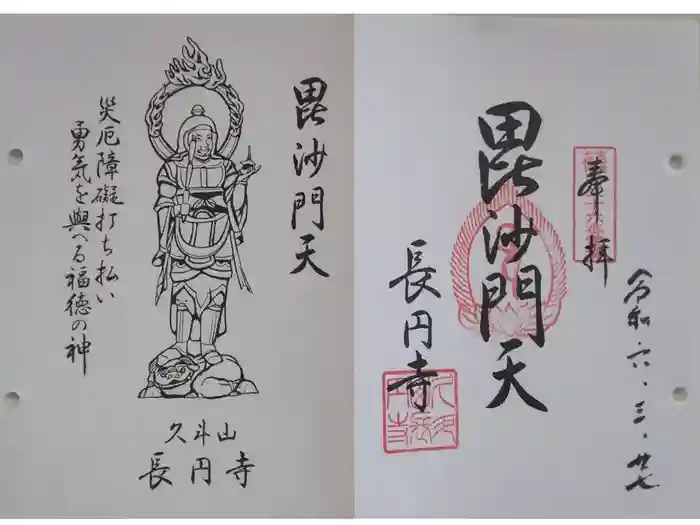 毘沙門天
災厄障礙打ち払い
勇気を與へる福徳の神
久斗山
長円寺
奉拝
毘沙門天
長円寺
令和六・三・廿七